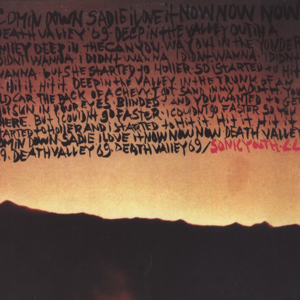 COMIN DOWN SADIE I LOVE it NOW NOW NOW
DEATH VALLEY '69 DEEP IN THE VALLEY OUT IN A
DEEP IN THE CANYON WAY OUT IN THE YONDER
DIDN'T WANNA I DIDN'T WANNA I DIDN'T WANNA
WANNA BUT SHE STARTED TO HOLLER SO I STARTED
HIT iT HIT DEEP IN THE TRUNK OF AN
OLD CAR THE BACK OF A CHEVY GOT SAND IN MY
SUN IN YOUR EYES BLINDED AND YOU WANTED TO GET
THERE BUT I COULDN'T GO FASTER I COULDN'T GO FASTER SO I
STARTED TO HOLLER AND I STARTED
COMIN DOWN SADIE I LOVE it NOW NOW NOW DEATH VALLEY
69. DEATH VALLEY 69 DEATH VALLEY 69/SONIC YOUTH·LL